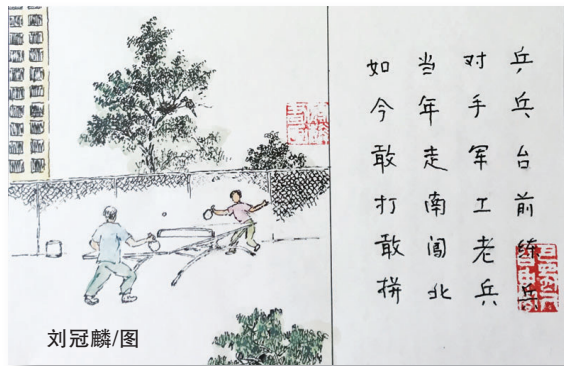 乒乓台前练兵
对手军工老兵
当年走南闯北
如今敢打敢拼
刘冠麟/图